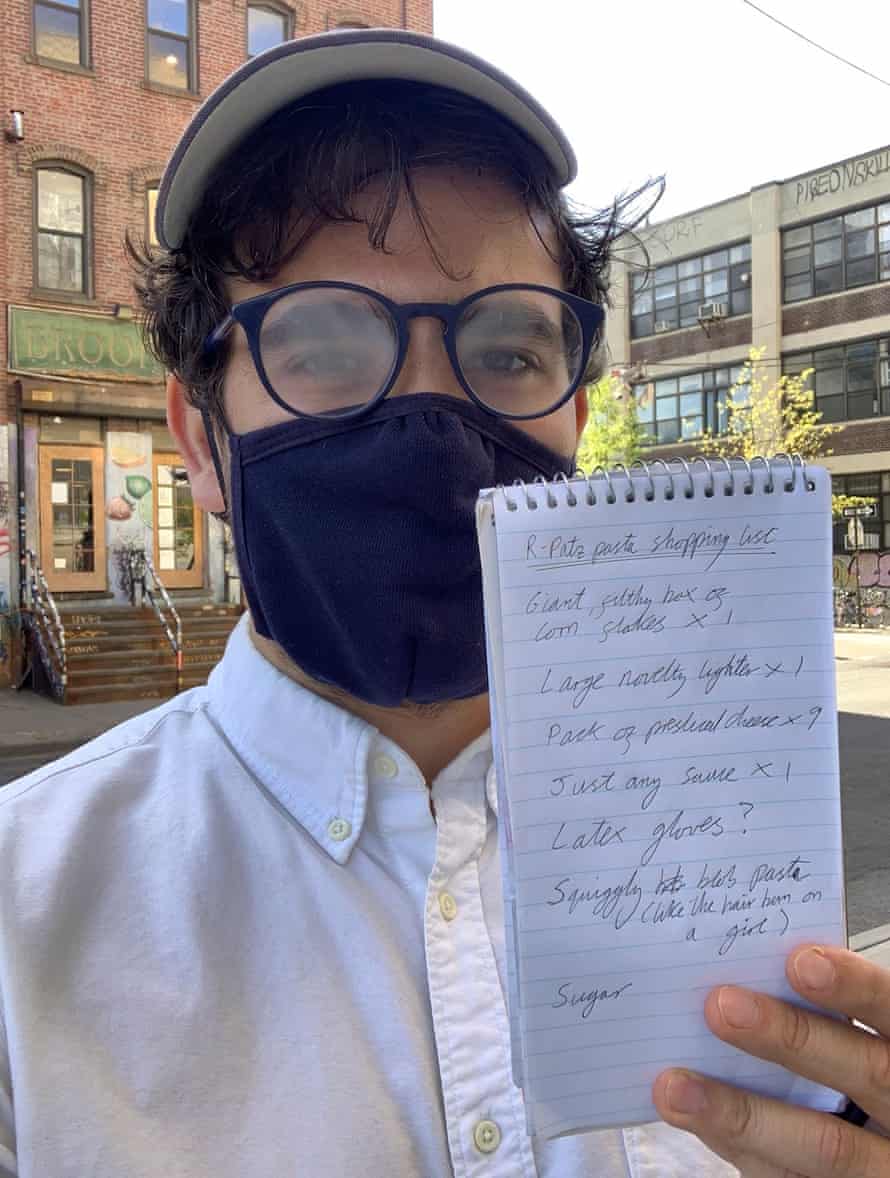 R-Patz pasta shopping list
Giant, filthy box of
corn flakes x 1
Large novelty lighter x 1
Pack of presliced cheese x 9
Just any sauce x 1
Latex gloves?
Squiggly blob pasta
(like the hair bun on
a girl)
Sugar